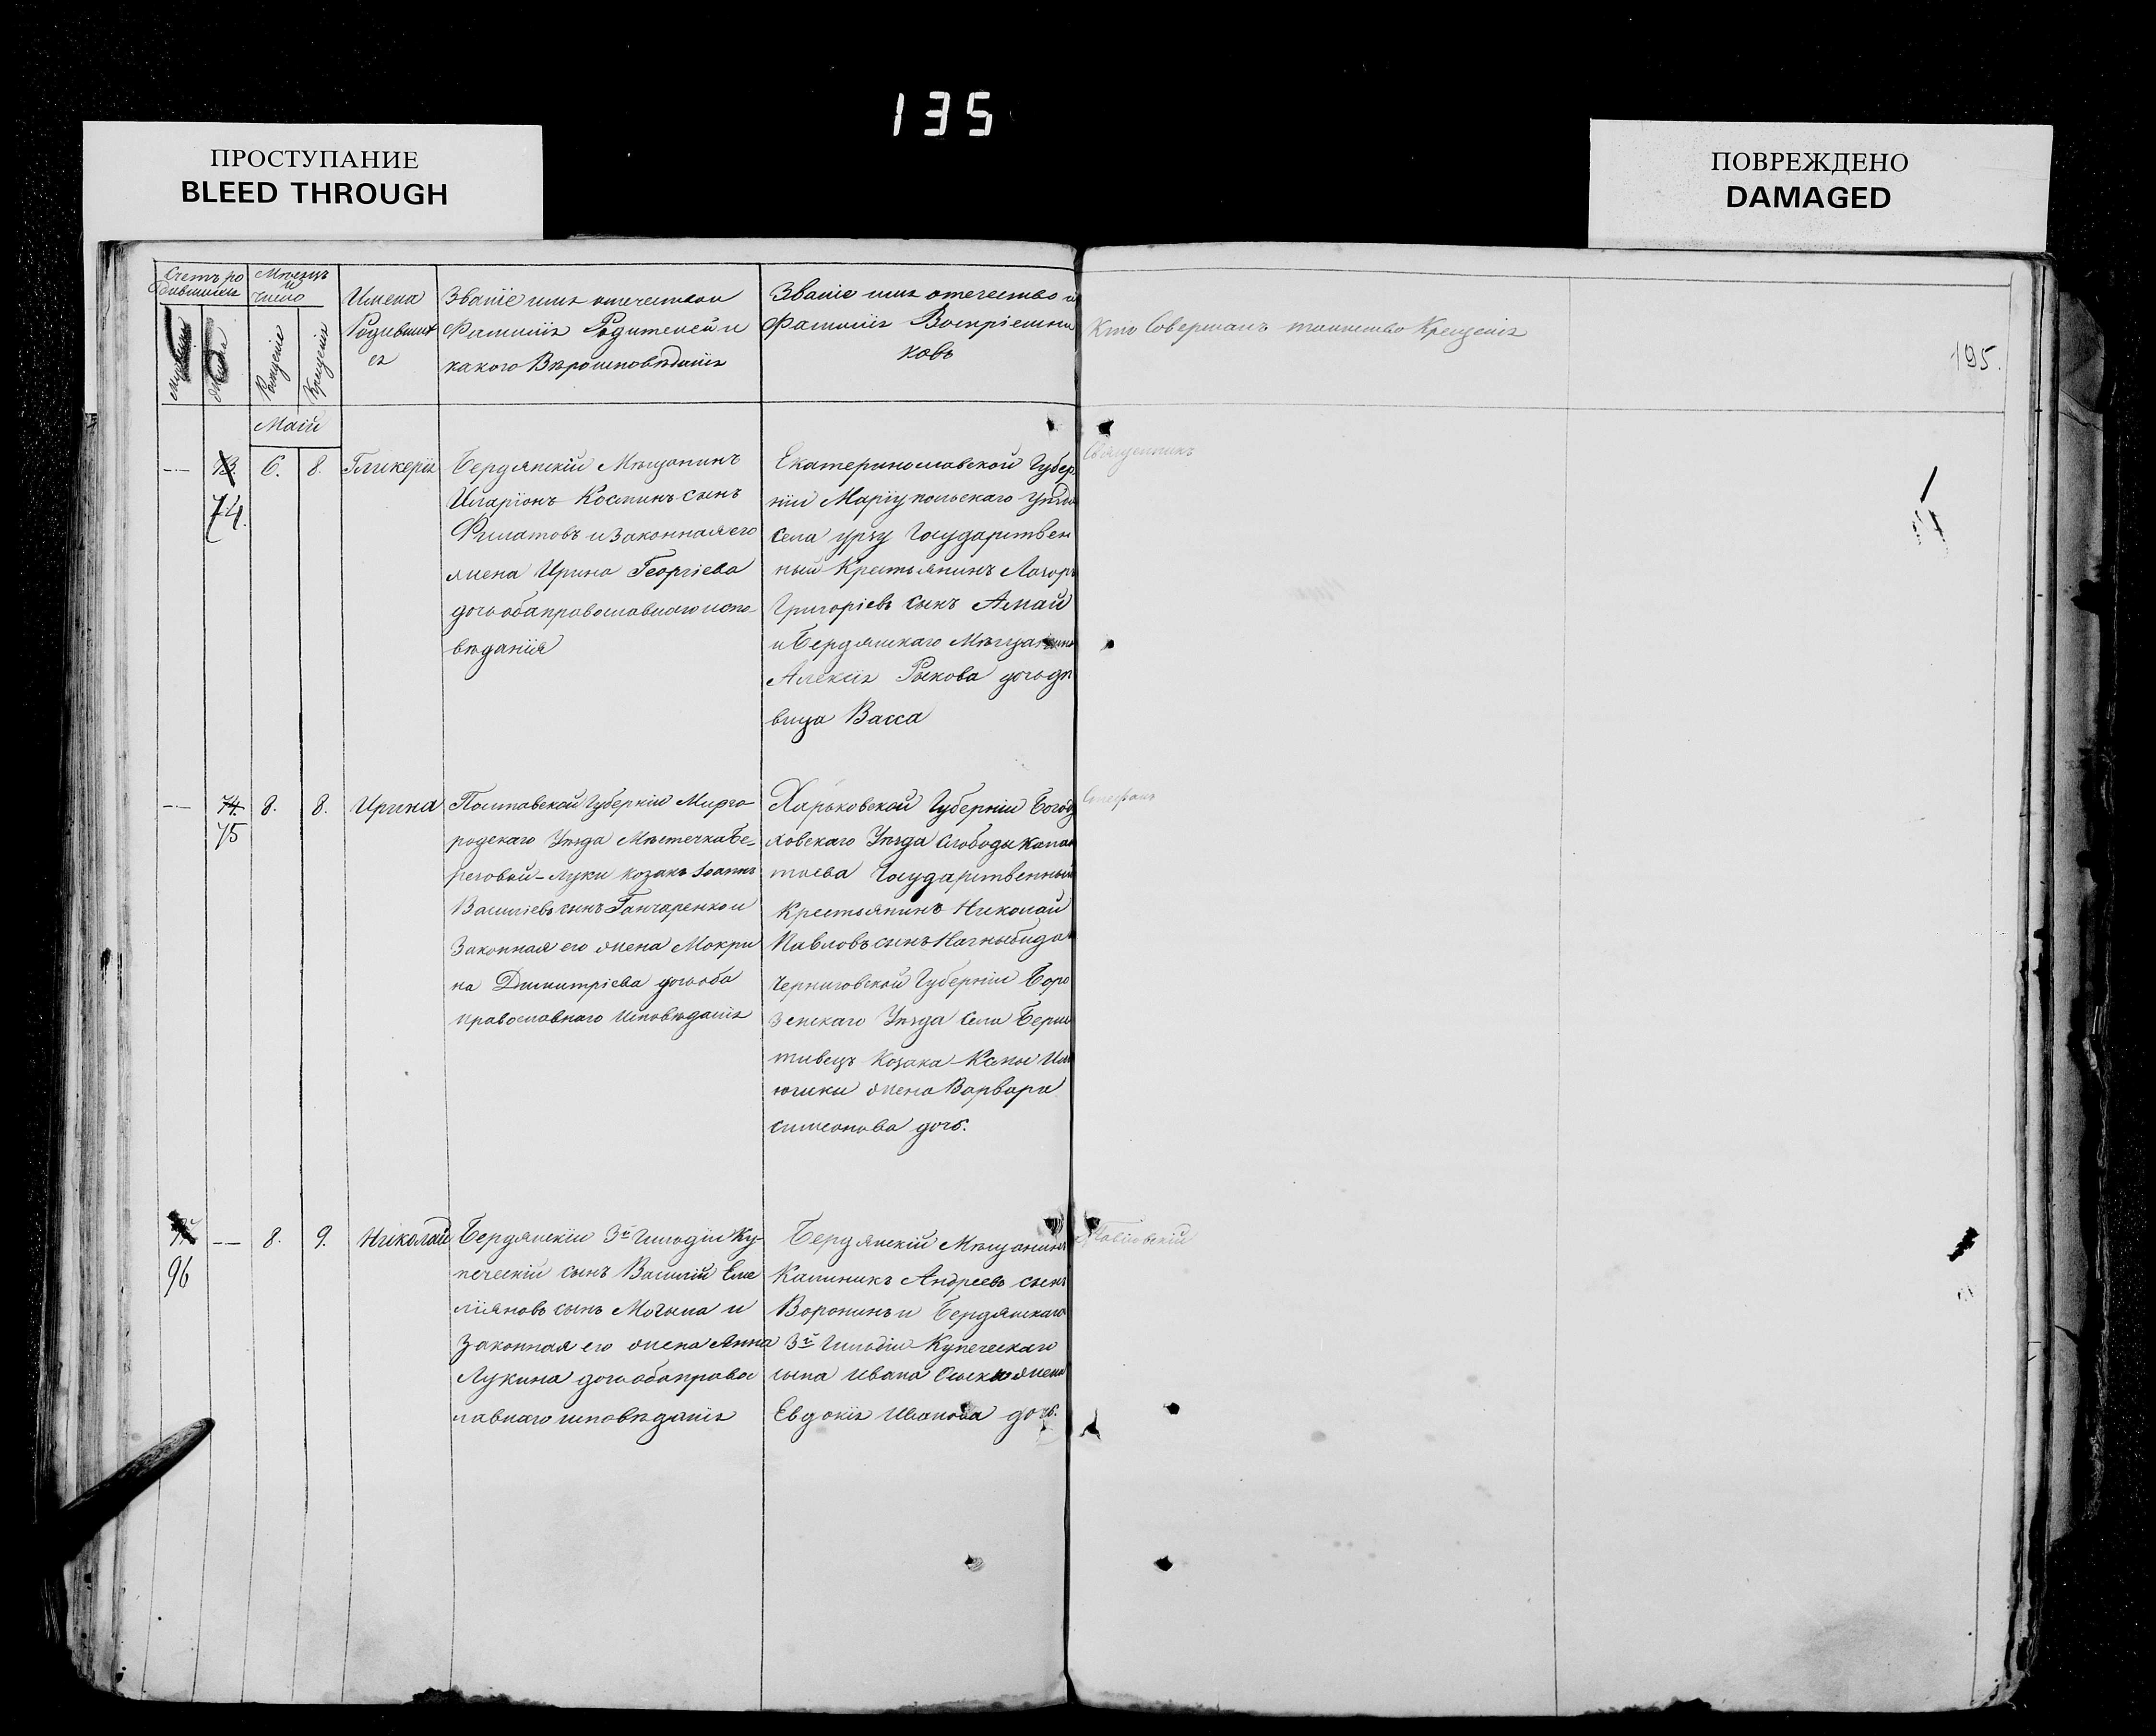 135
ПРОСТУПАНИЕ
BLEED THROUGH
ПОВРЕЖДЕНО
DAMAGED
Счетъ ро
дившихся
Мѣсяцъ
и
число
Рожденія
Крещенія
Имена
Родивших
ся
Званіе имя отчество и
Фамилія Родителей и
какого Вѣроисповѣданія
Званіе имя отечество и
Фамилія Воспріемни
ковъ
Кто Совершалъ таинство Крещенія
195.
Маій
73.
74.
6.
8.
Гликерія
Бердянскій Мѣщанинъ
Иларіонъ Косминъ сынъ
Филатовъ и Законная его
жена Ирина Георгіева
дочь оба православнаго испо
вѣданія
Екатеринославской Губер
ніи Маріупольскаго уѣзда
села урзу Государствен
ный Крестьянинъ Лазорь
Григоріевъ сынъ Амай
и Бердянскаго Мѣщанина
Алексія Рыкова дочь дѣ
вица Васса
Священникъ
74.
75
8.
8.
Ирина
Полтавской Губерніи Мирго
родскаго Уѣзда Мѣстечка Бе-
реговой-Луки козакъ Іоаннъ
Василіевъ сынъ Ганчаренко и
Законная его жена Мокри
на Димитріева дочь оба
православнаго Исповѣданія
Харьковской Губерніи Богод
ховскаго Уѣзда Слободы
Государственный
Крестьянинъ Николай
Павловъ сынъ Нагныбида
Черниговской Губерніи Борз
зенскаго Уѣзда Села
Козака
жена Варвара
Симеонова дочь.
Стефанъ
96
8.
9.
Николай
Бердянскій 3й Гильдіи Ку-
печескій сынъ Василій Еме
ліяновъ сынъ Могыла и
Законная его жена Анна
Лукина дочь оба правос
лавнаго исповѣданія
Бердянскій Мѣщанинъ
Калиникъ Андреевъ сынъ
Воронинъ и Бердянскаго
3й Гильдіи Купеческаго
сына Ивана жена
Евдокія Иванова дочь.